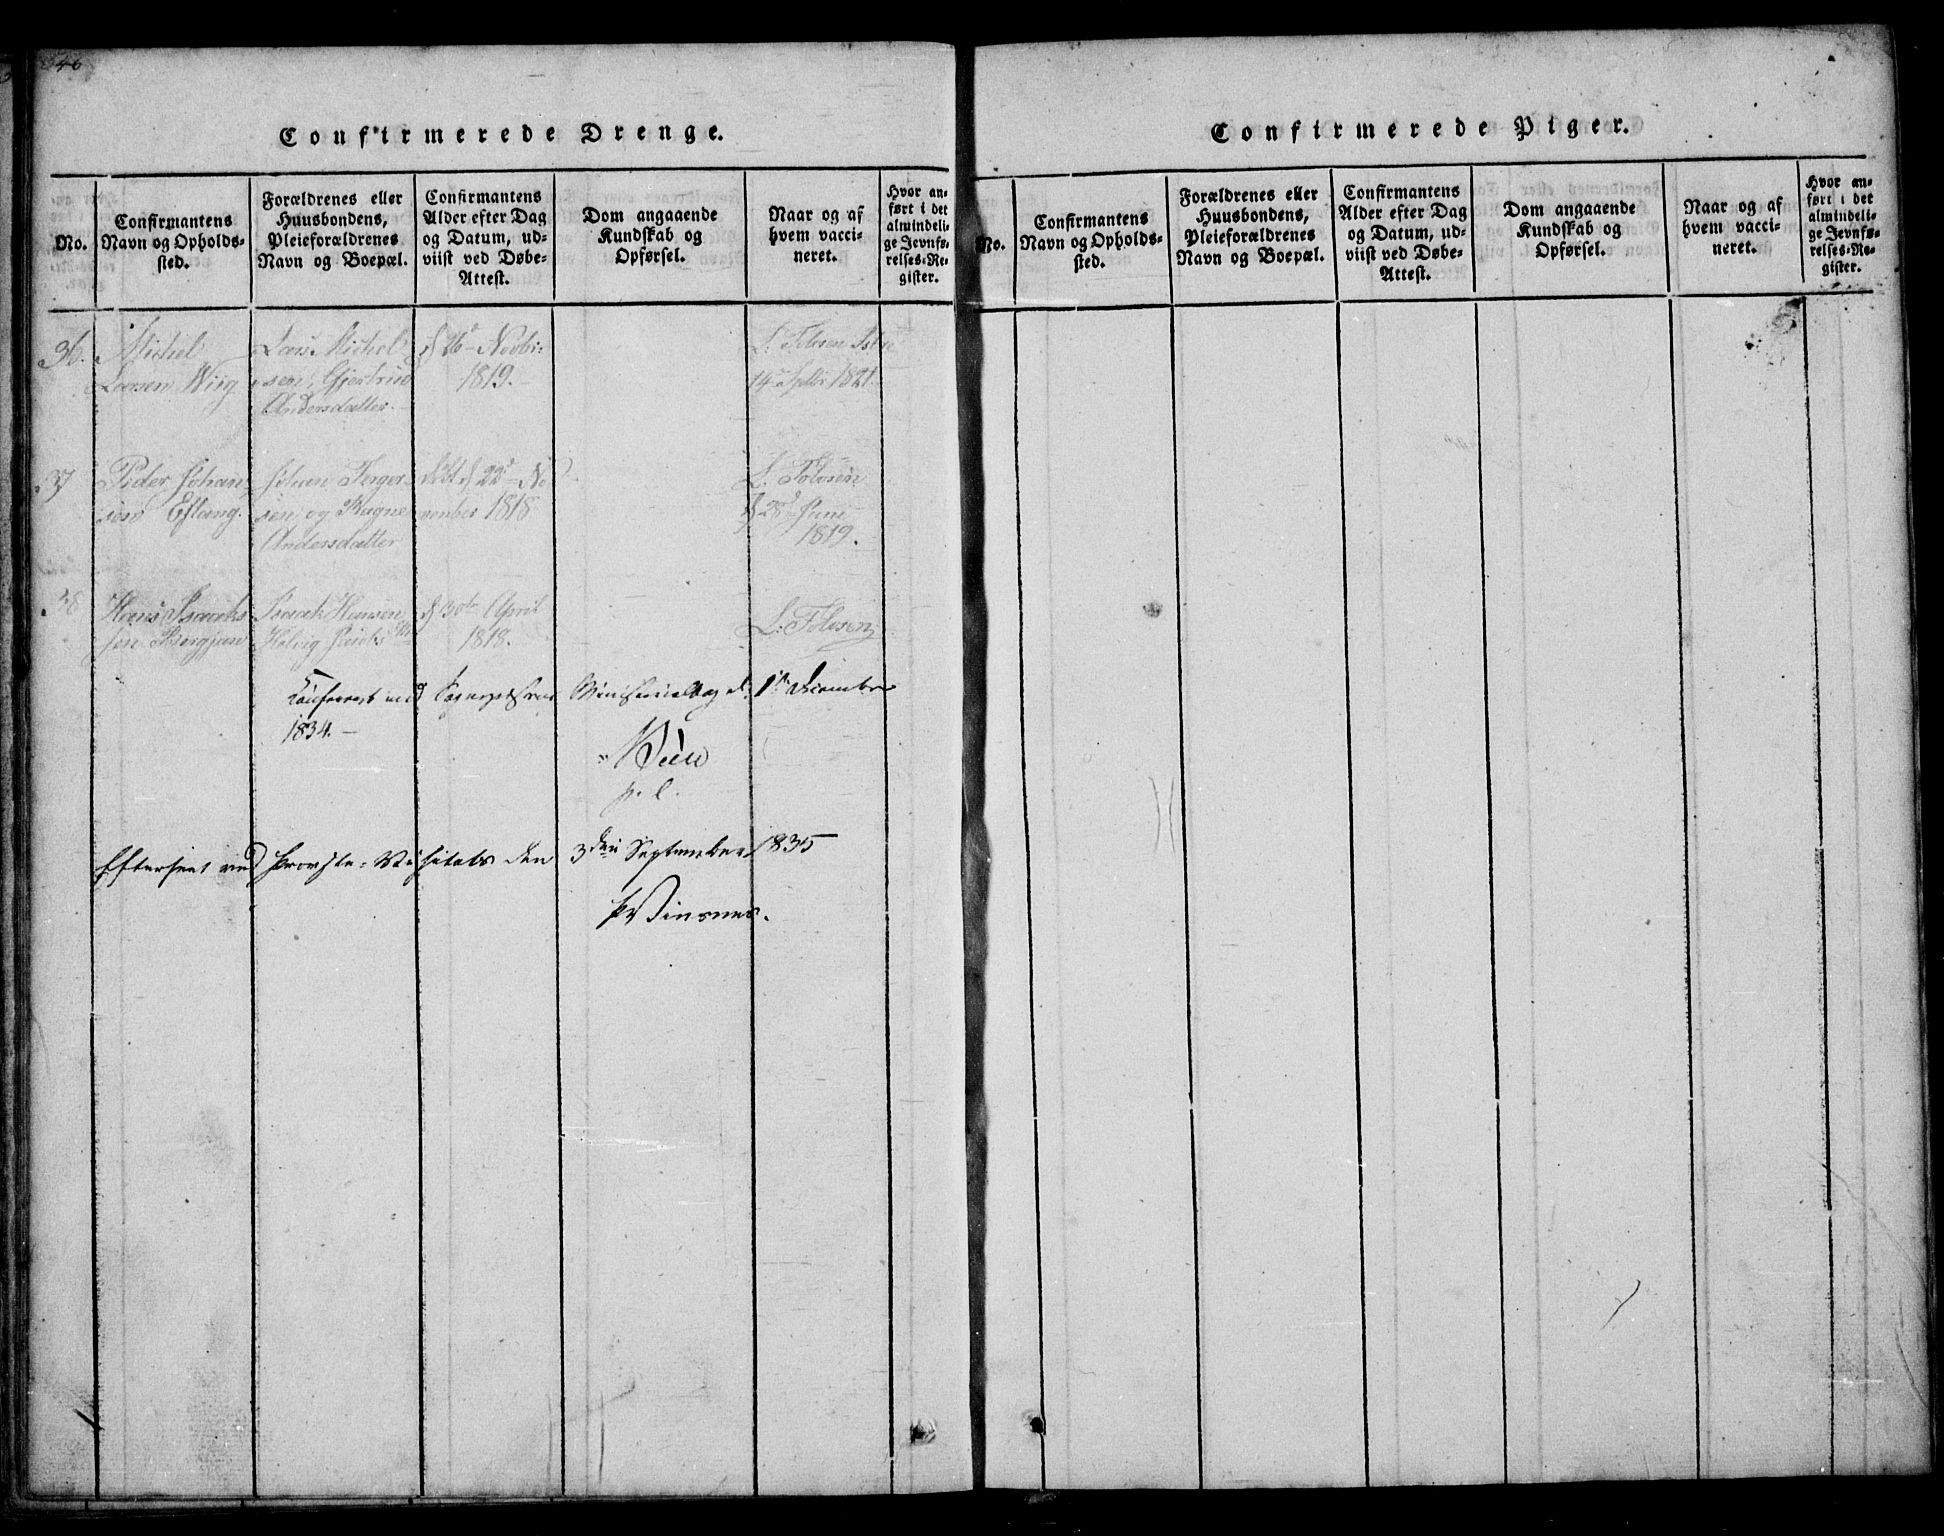 46
Confirmerede Drenge.
No.
Confirmantens
Navn og Opholds-
sted.
Forældrenes eller
Huusbondens,
Pleieforældrenes
Navn og Boepæl.
Confirmantens
Alder efter Dag
og Datum, ud-
viist ved Døbe-
Attest.
Dom angaaende
Kundskab og
Opførsel.
Naar og af
hvem vacci-
neret.
Hvor an-
ført i det
almindeli-
ge Jevnfø-
relses-Re-
gister.
36.
Michel
Larsen Wiig
Lars Michel
sen, Gjertrud
Andersdatter
d 26 Novbr:
1819.
L. Tolesen
14 Septbr 1821.
37
Peder Johan
sen Eftang.
Johan Jerger
sen og Ragne
Andersdatter
d 22d No
vember 1818
L. Tolvsen
d 28d Juni
1819.
38
Hans Isaaks
sen Biergjan
Isaak Hansen
Helvig
d 30te April
1818.
L. Tolvsen
Confereret med Sogneprestens Ministerialbog d. 1te December
1834. –
p. l.
Efterseet ved Provste-Visitats den 3die September 1835
Winsnes.
Confirmerede Piger.
No.
Confirmantens
Navn og Opholds-
sted.
Forældrenes eller
Huusbondens,
Pleieforældrenes
Navn og Boepæl.
Confirmantens
Alder efter Dag
og Datum, ud-
viist ved Døbe-
Attest.
Dom angaaende
Kundskab og
Opførsel.
Naar og af
hvem vacci-
neret.
Hvor an-
ført i det
almindeli-
ge Jevnfø-
relses-Re-
gister.